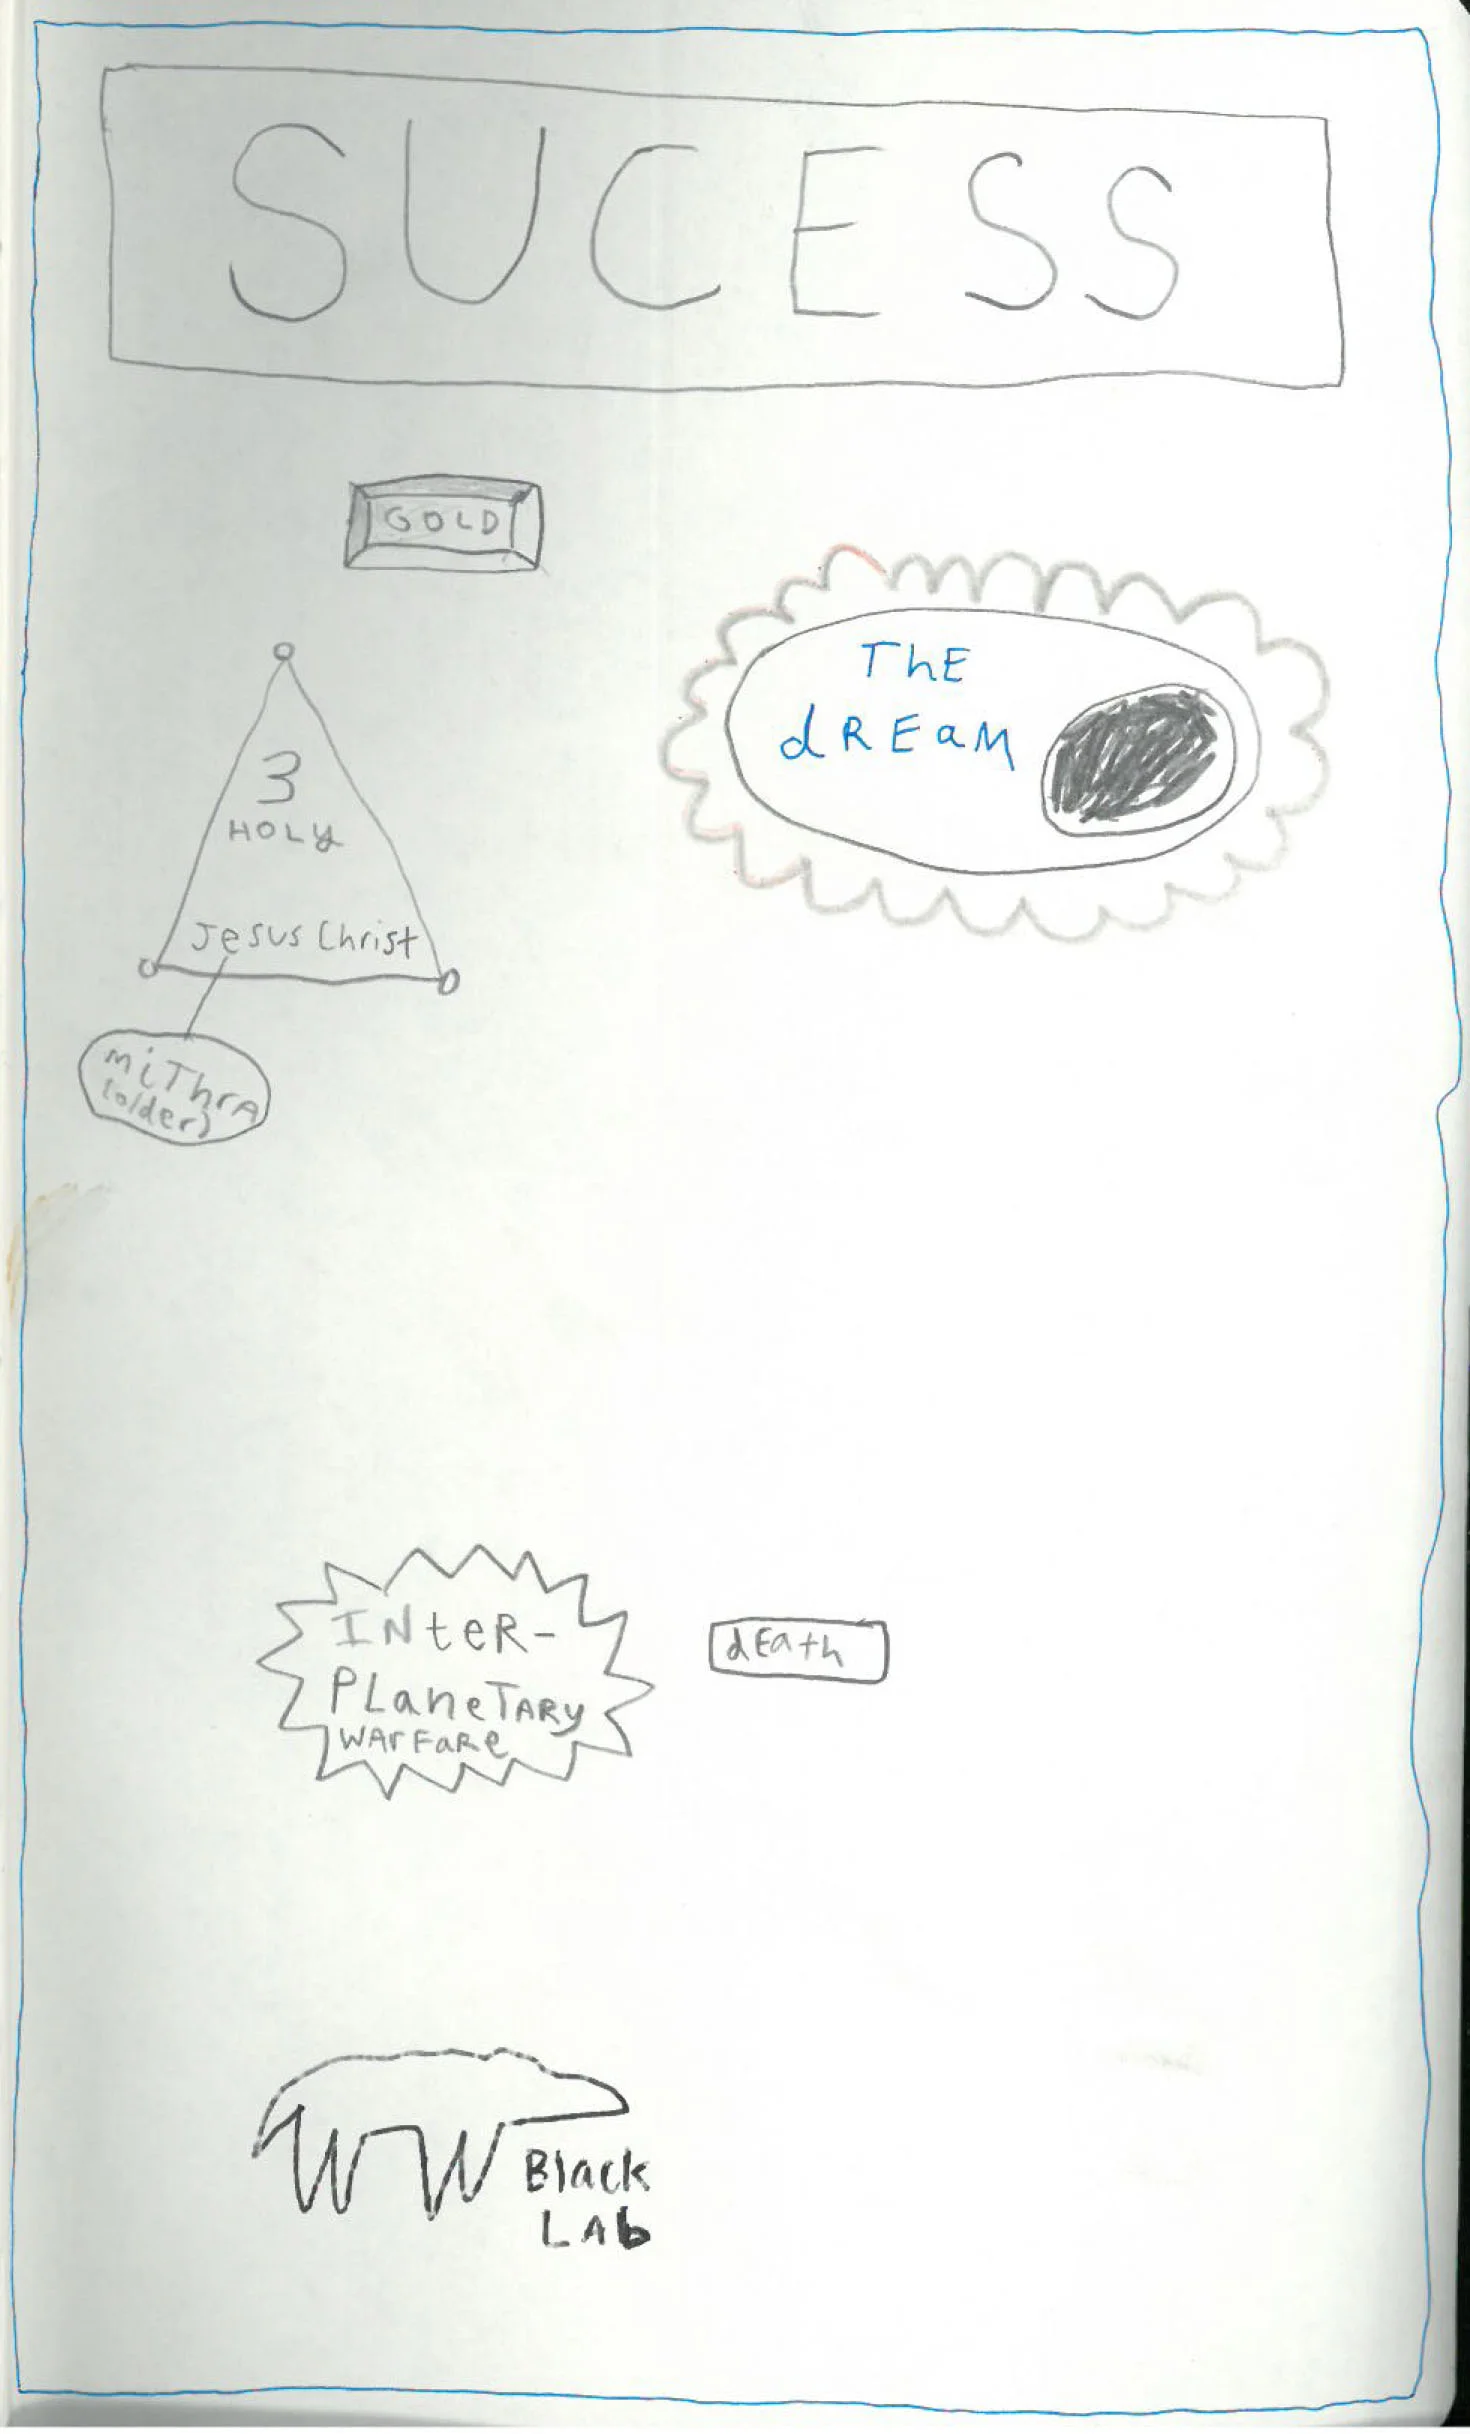 SUCESS
GOLD
ThE
dREaM
3
HOLY
Jesus Christ
miThrA
(older)
INteR-
PLaneTARY
WArFaRe
dEath
Black
LAb